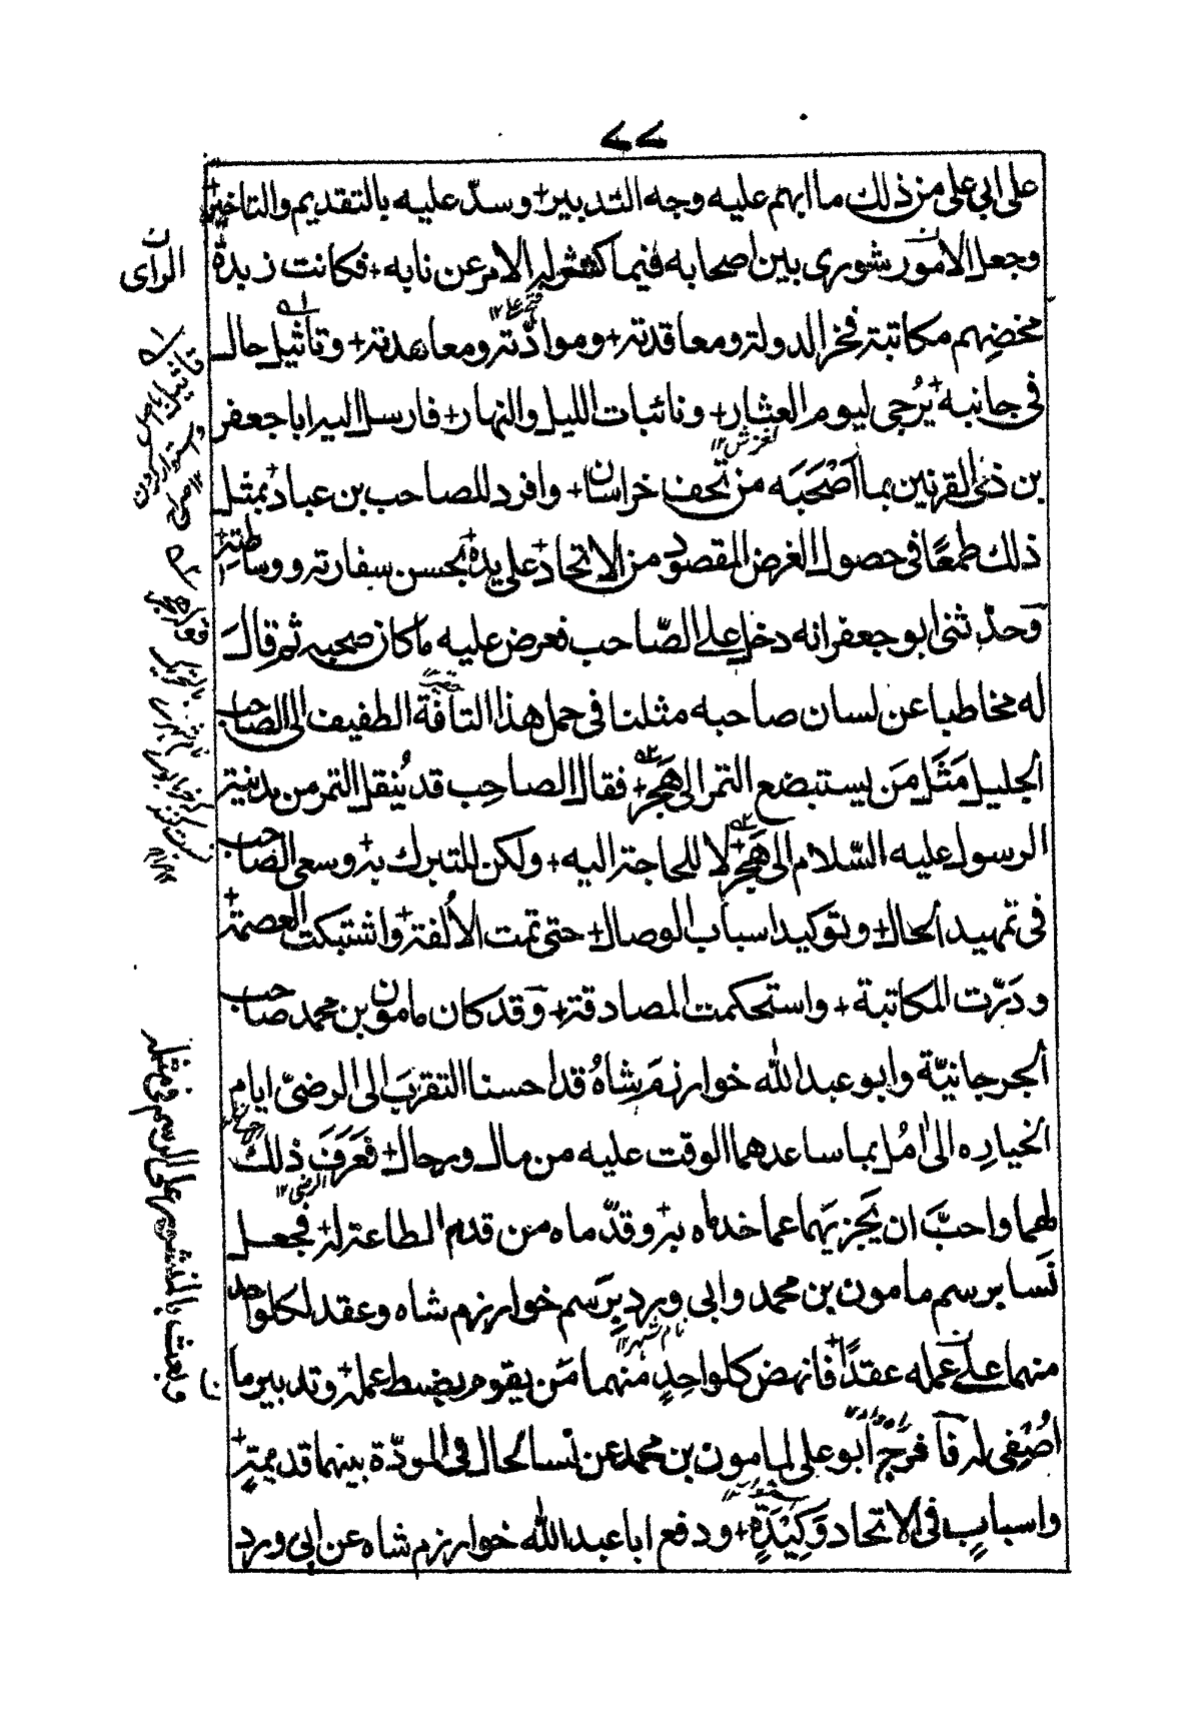 ٧٧
على ابى على من ذلك ما ابهم عليه وجه التدبير+ وسدّ عليه بالتقديم والتاخير+
وجعل الامور شورى بين اصحابه فيما كشف له الامر عن نابه+ فكانت زبدة
مخضهم مكاتبة فخر الدولة ومعاقدته+ وموادّته ومعاهدته+ وتاثيل حال
فى جانبه يُرجى ليوم العثار+ ونائبات الليل والنهار+ فارسل اليه ابا جعفر
بن ذى القرنين بما اَصْحَبَه من تحف خراسان+ وافرد للصاحب بن عباد بمثل
ذلك طمعًا فى حصول الغرض المقصود من الاتحاد+ على يده+ بحسن سفارته ووساطته+
وحدّثنى ابو جعفر انه دخل على الصّاحب فعرض عليه ما كان صحبه ثم قال
له مخاطبا عن لسان صاحبه مثلنا فى حمل هذا التافة الطفيف الى الصاحب
الجليل مَثَل مَن يستبضع التمر الى هَجَر+ فقال الصاحب قد يُنقل التمر من مدينة
الرسول عليه السّلام الى هَجَر+ لا للحاجة اليه+ ولكن للتبرك به+ وسعى الصاحب
فى تمهيد الحال+ وتوكيد اسباب الوصال+ حتى تمت الاُلفة+ واشتبكت العصمة+
ودَرّت المكاتبة+ واستحكمت المصادقة+ وقد كان مامون بن محمد صاحب
الجرجانيّة وابو عبد الله خوارزم شاهُ قد احسنا التقرب الى الرضىّ ايام
انحيازه الى اٰمُل بما ساعدهما الوقت عليه من مال ورجال+ فعَرَفَ ذلك
لهما واحبَّ ان يَجزيَهما عما خدماه به+ وقدّماه من قدم الطاعة له+ فجعل
نَسا برسم مامون بن محمد وابى ورد بِرَسم خوارزم شاه وعقد لكل واحد
منهما على عمله عقدًا+ فانهض كل واحِدٍ منهما مَن يقوم بضبط عمله+ وتدبير ما
اُضيفى له فافرج ابو على لمامون بن محمد عن نسا لحال فى المودّة بينهما قديمةٍ+
واسبابٍ فى الاتحاد وَكِيْدَةٍ+ ودفع ابا عبد الله خوارزم شاه عن ابى ورد
الراى